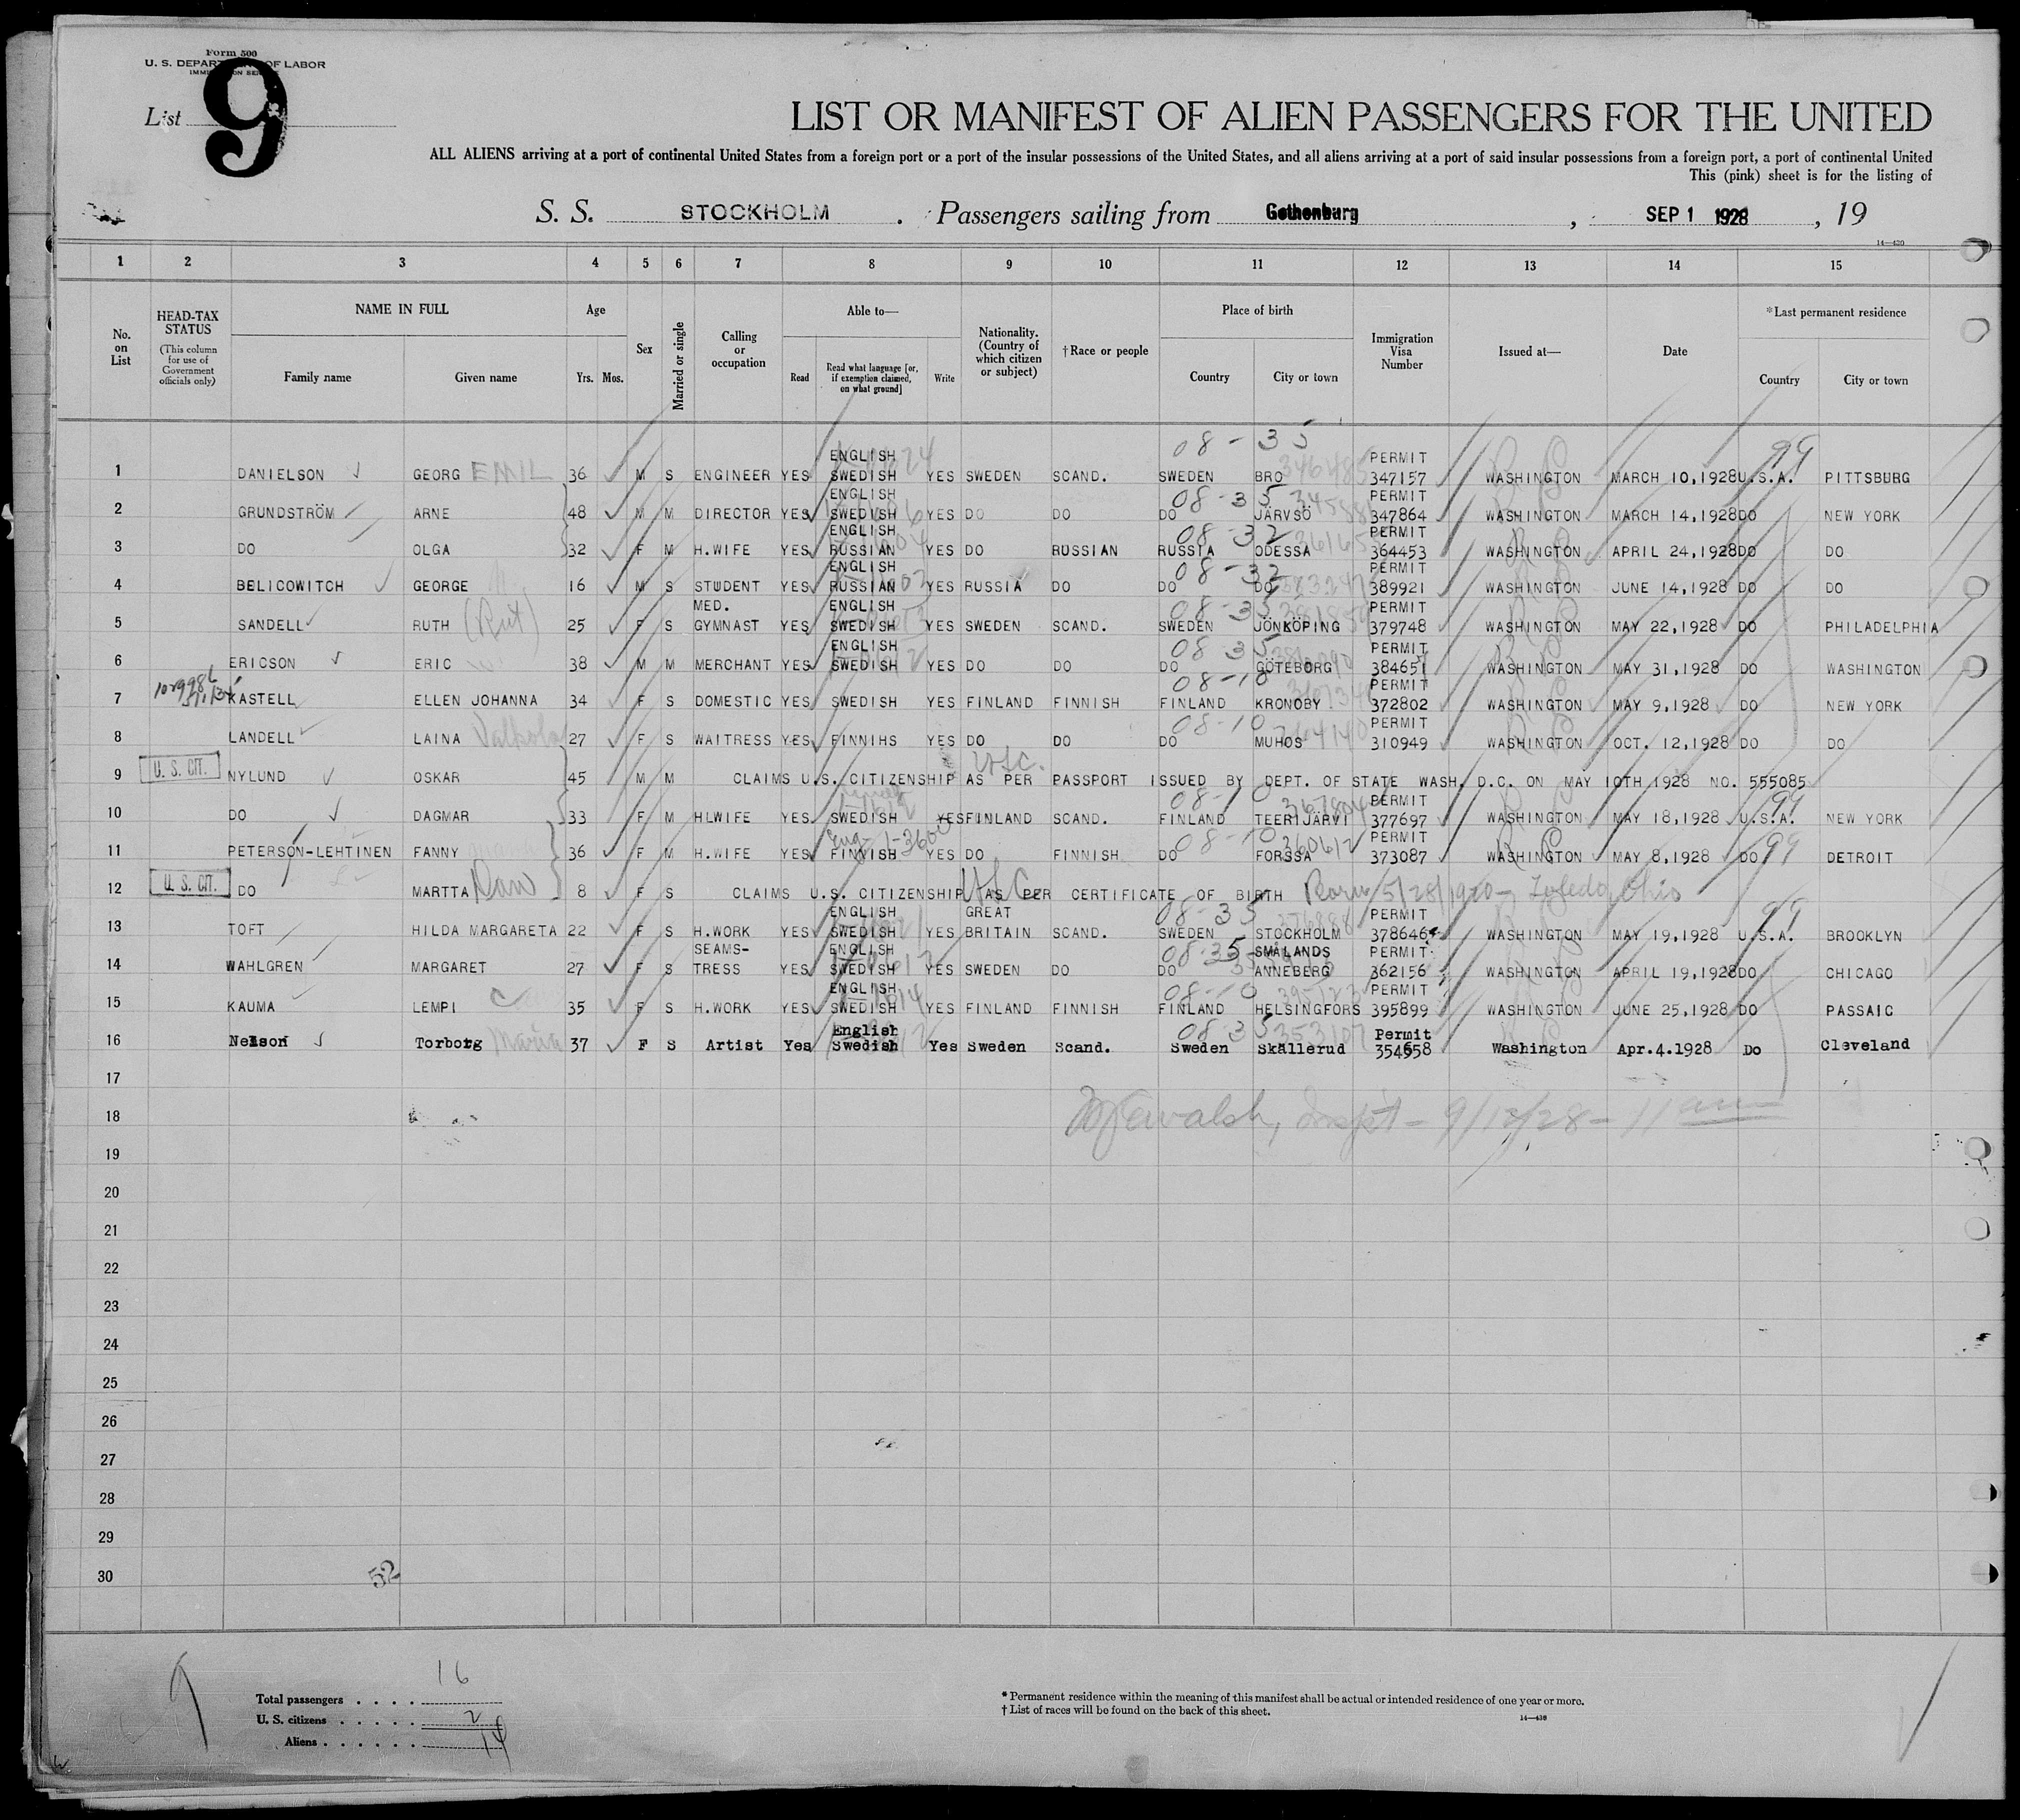 Form 500
U. S. DEPARTMENT OF LABOR
IMMIGRATION SERVICE
List 9
LIST OR MANIFEST OF ALIEN PASSENGERS FOR THE UNITED
ALL ALIENS arriving at a port of continental United States from a foreign port or a port of the insular possessions of the United States, and all aliens arriving at a port of said insular possessions from a foreign port, a port of continental United
This (pink) sheet is for the listing of
S. S. STOCKHOLM . Passengers sailing from Gothenburg , SEP 1 1928 , 19
14—430
1 2 3 4 5 6 7 8 9 10 11 12 13 14 15
No. on List
HEAD-TAX STATUS (This column for use of Government officials only)
NAME IN FULL
Family name Given name
Age
Yrs. Mos.
Sex
Married or single
Calling or occupation
Able to—
Read Read what language [or, if exemption claimed, on what ground] Write
Nationality. (Country of which citizen or subject)
†Race or people
Place of birth
Country City or town
Immigration Visa Number
Issued at—
Date
*Last permanent residence
Country City or town
08-35 99
ENGLISH PERMIT
1 DANIELSON GEORG EMIL 36 M S ENGINEER YES SWEDISH YES SWEDEN SCAND. SWEDEN BRO 347157 WASHINGTON MARCH 10,1928 U.S.A. PITTSBURG
ENGLISH 08-35 PERMIT
2 GRUNDSTRÖM ARNE 48 M M DIRECTOR YES SWEDISH YES DO DO DO JÄRVSÖ 347864 WASHINGTON MARCH 14,1928 DO NEW YORK
ENGLISH 08-32 PERMIT
3 DO OLGA 32 F M H.WIFE YES RUSSIAN YES DO RUSSIAN RUSSIA ODESSA 364453 WASHINGTON APRIL 24,1928 DO DO
ENGLISH 08-32 PERMIT
4 BELICOWITCH GEORGE 16 M S STUDENT YES RUSSIAN YES RUSSIA DO DO DO 389921 WASHINGTON JUNE 14,1928 DO DO
MED. ENGLISH 08-35 PERMIT
5 SANDELL RUTH (Rut) 25 F S GYMNAST YES SWEDISH YES SWEDEN SCAND. SWEDEN JÖNKÖPING 379748 WASHINGTON MAY 22,1928 DO PHILADELPHIA
ENGLISH 08-35
6 ERICSON ERIC 38 M M MERCHANT YES SWEDISH YES DO DO DO GÖTEBORG 384651 WASHINGTON MAY 31,1928 DO WASHINGTON
08-10 PERMIT
7 KASTELL ELLEN JOHANNA 34 F S DOMESTIC YES SWEDISH YES FINLAND FINNISH FINLAND KRONOBY 372802 WASHINGTON MAY 9,1928 DO NEW YORK
08-10 PERMIT
8 LANDELL LAINA 27 F S WAITRESS YES FINNIHS YES DO DO DO MUHOS 310949 WASHINGTON OCT. 12,1928 DO DO
9 U. S. CIT. NYLUND OSKAR 45 M M CLAIMS U.S. CITIZENSHIP AS PER PASSPORT ISSUED BY DEPT. OF STATE WASH. D.C. ON MAY 10TH 1928 NO. 555085
08-10 PERMIT 99
10 DO DAGMAR 33 F M HLWIFE YES SWEDISH YES FINLAND SCAND. FINLAND TEERIJÄRVI 377697 WASHINGTON MAY 18,1928 U.S.A. NEW YORK
Eng 08-10 PERMIT
11 PETERSON-LEHTINEN FANNY 36 F M H.WIFE YES FINNISH YES DO FINNISH DO FORSSA 373087 WASHINGTON MAY 8,1928 DO 99 DETROIT
12 U. S. CIT. DO MARTTA 8 F S CLAIMS U.S. CITIZENSHIP AS PER CERTIFICATE OF BIRTH Born 5/28/1920 - Toledo, Ohio
ENGLISH GREAT 08-35 PERMIT 99
13 TOFT HILDA MARGARETA 22 F S H.WORK YES SWEDISH YES BRITAIN SCAND. SWEDEN STOCKHOLM 378646 WASHINGTON MAY 19,1928 U.S.A. BROOKLYN
SEAMS- ENGLISH 08-35 SMÅLANDS PERMIT
14 WAHLGREN MARGARET 27 F S TRESS YES SWEDISH YES SWEDEN DO DO ANNEBERG 362156 WASHINGTON APRIL 19,1928 DO CHICAGO
ENGLISH 08-10 PERMIT
15 KAUMA LEMPI 35 F S H.WORK YES SWEDISH YES FINLAND FINNISH FINLAND HELSINGFORS 395899 WASHINGTON JUNE 25,1928 DO PASSAIC
English 08-35 Permit
16 Nelson Torborg Maria 37 F S Artist Yes Swedish Yes Sweden Scand. Sweden Skallerud 354658 Washington Apr.4.1928 Do Cleveland
17
18 Inspt - 9/12/28 - 11 am
19
20
21
22
23
24
25
26
27
28
29
30
52
9
Total passengers . . . . 16
U. S. citizens . . . . . 2
Aliens . . . . . . 14
* Permanent residence within the meaning of this manifest shall be actual or intended residence of one year or more.
† List of races will be found on the back of this sheet.
14—430